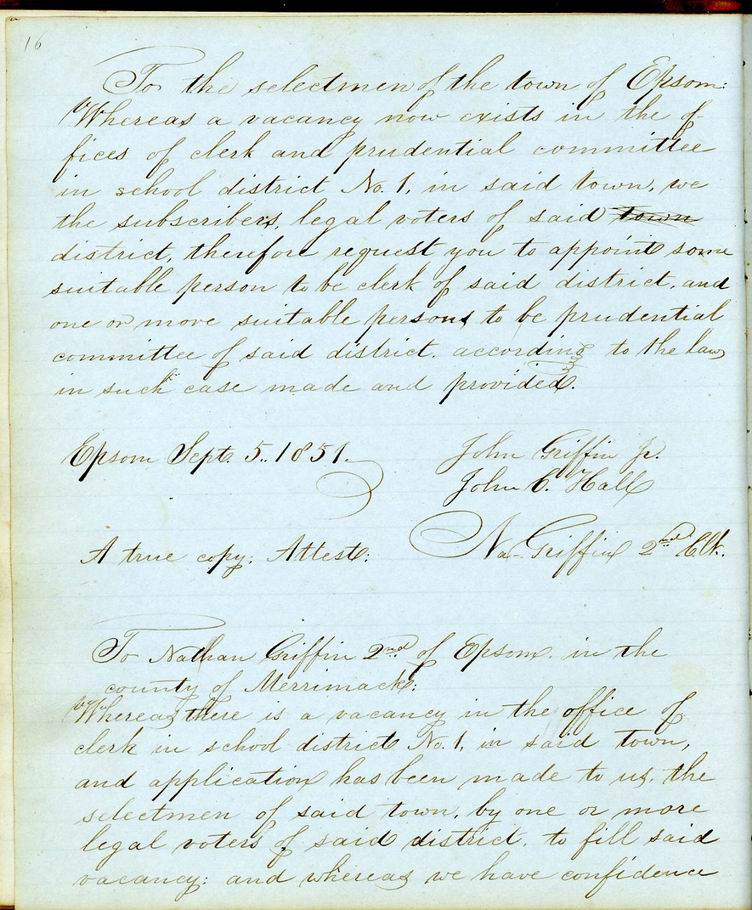 16
To the selectmen of the town of Epsom:
Whereas a vacancy now exists in the of-
fices of clerk and prudential committee
in school district No. 1, in said town, we
the subscribers, legal voters of said town
district, therefore request you to appoint some
suitable person to be clerk of said district, and
one or more suitable persons to be prudential
committee of said district, according to the law
in such case made and provided.
Epsom Sept. 5. 1851.
John Griffin Jr.
John C. Hall
A true copy. Attest.
Na- Griffin 2nd Clk.
To Nathan Griffin 2nd of Epsom. in the
county of Merrimack:
Whereas there is a vacancy in the office of
clerk in school district No. 1, in said town,
and application has been made to us, the
selectmen of said town, by one or more
legal voters of said district, to fill said
vacancy: and whereas we have confidence